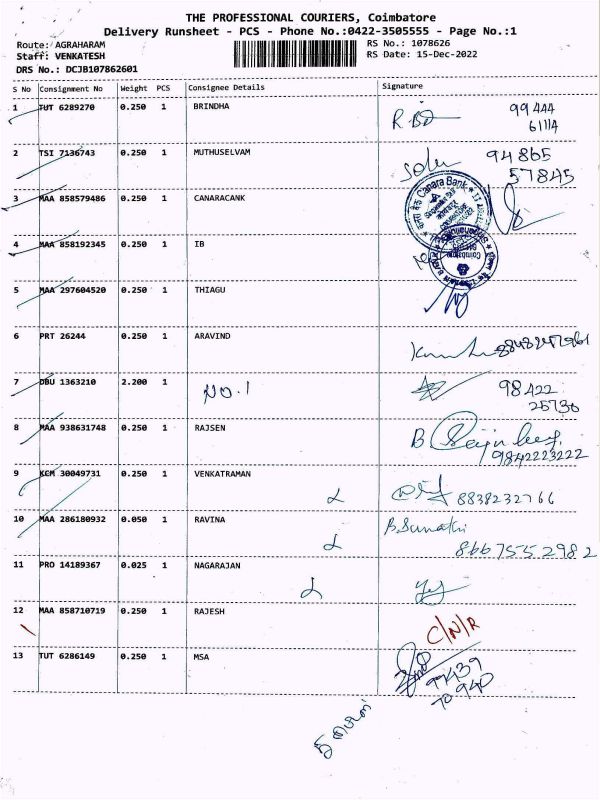 THE PROFESSIONAL COURIERS, Coimbatore
Delivery Runsheet - PCS - Phone No.:0422-3505555 - Page No.:1
Route: AGRAHARAM RS No.: 1078626
Staff: VENKATESH RS Date: 15-Dec-2022
DRS No.: DCJB107862601
S No Consignment No Weight PCS Consignee Details Signature
1 TUT 6289270 0.250 1 BRINDHA 99444
61114
2 TSI 7136743 0.250 1 MUTHUSELVAM 94865
57845
3 MAA 858579486 0.250 1 CANARACANK
Canara Bank
4 MAA 858192345 0.250 1 IB
Coimbatore
5 MAA 297604520 0.250 1 THIAGU
6 PRT 26244 0.250 1 ARAVIND
7 DBU 1363210 2.200 1 NO.1 98422
25730
8 MAA 938631748 0.250 1 RAJSEN B
9842223222
9 KCM 30049731 0.250 1 VENKATRAMAN 8838232766
10 MAA 286180932 0.050 1 RAVINA B.Sumathi
8667552982
11 PRO 14189367 0.025 1 NAGARAJAN
12 MAA 858710719 0.250 1 RAJESH C/N/R
13 TUT 6286149 0.250 1 MSA
70940